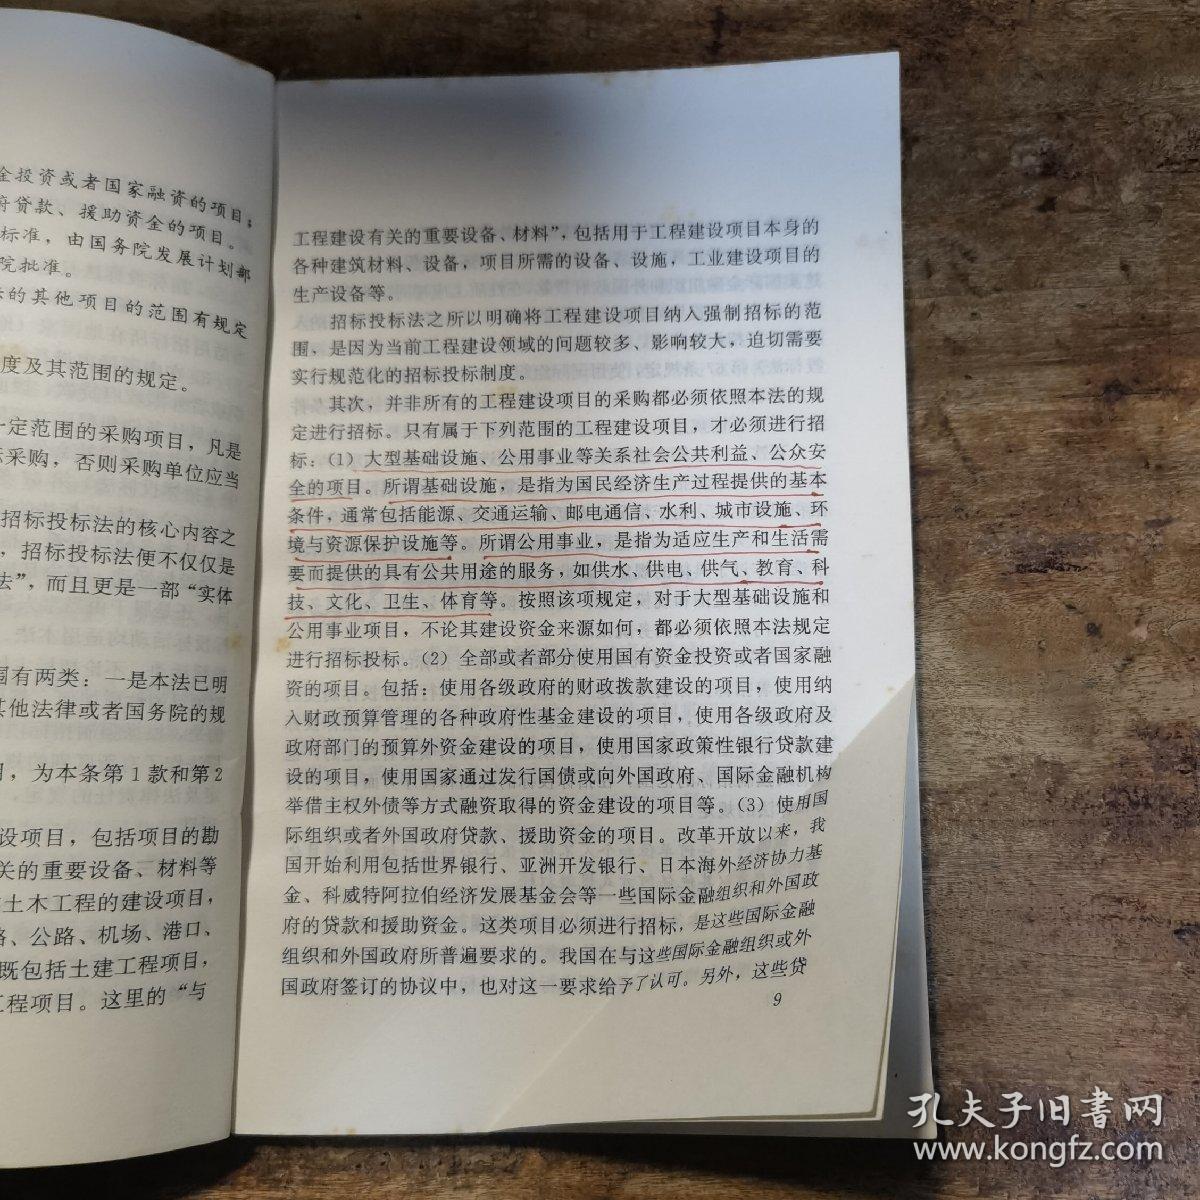 金投资或者国家融资的项目；
府贷款、援助资金的项目。
标准，由国务院发展计划部
院批准。
的其他项目的范围有规定
度及其范围的规定。
一定范围的采购项目，凡是
采购，否则采购单位应当
招标投标法的核心内容之
，招标投标法便不仅仅是
法”，而且更是一部“实体
围有两类：一是本法已明
其他法律或者国务院的规
，为本条第1款和第2
设项目，包括项目的勘
关的重要设备、材料等
土木工程的建设项目，
路、公路、机场、港口、
既包括土建工程项目，
工程项目。这里的“与
工程建设有关的重要设备、材料”，包括用于工程建设项目本身的
各种建筑材料、设备，项目所需的设备、设施，工业建设项目的
生产设备等。
招标投标法之所以明确将工程建设项目纳入强制招标的范
围，是因为当前工程建设领域的问题较多、影响较大，迫切需要
实行规范化的招标投标制度。
其次，并非所有的工程建设项目的采购都必须依照本法的规
定进行招标。只有属于下列范围的工程建设项目，才必须进行招
标：（1）大型基础设施、公用事业等关系社会公共利益、公众安
全的项目。所谓基础设施，是指为国民经济生产过程提供的基本
条件，通常包括能源、交通运输、邮电通信、水利、城市设施、环
境与资源保护设施等。所谓公用事业，是指为适应生产和生活需
要而提供的具有公共用途的服务，如供水、供电、供气、教育、科
技、文化、卫生、体育等。按照该项规定，对于大型基础设施和
公用事业项目，不论其建设资金来源如何，都必须依照本法规定
进行招标投标。（2）全部或者部分使用国有资金投资或者国家融
资的项目。包括：使用各级政府的财政拨款建设的项目，使用纳
入财政预算管理的各种政府性基金建设的项目，使用各级政府及
政府部门的预算外资金建设的项目，使用国家政策性银行贷款建
设的项目，使用国家通过发行国债或向外国政府、国际金融机构
举借主权外债等方式融资取得的资金建设的项目等。（3）使用国
际组织或者外国政府贷款、援助资金的项目。改革开放以来，我
国开始利用包括世界银行、亚洲开发银行、日本海外经济协力基
金、科威特阿拉伯经济发展基金会等一些国际金融组织和外国政
府的贷款和援助资金。这类项目必须进行招标，是这些国际金融
组织和外国政府所普遍要求的。我国在与这些国际金融组织或外
国政府签订的协议中，也对这一要求给予了认可。另外，这些贷
9
孔夫子旧书网
www.kongfz.com